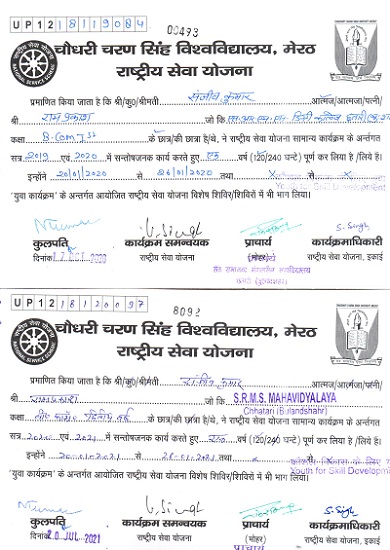 UP12 18119084
00493
चौधरी चरण सिंह विश्वविद्यालय, मेरठ
राष्ट्रीय सेवा योजना
प्रमाणित किया जाता है कि श्री/कु0/श्रीमती संजीव कुमार आत्मज/आत्मजा/पत्नी
श्री राम प्रकाश जो कि
कक्षा B.Com Ist के छात्र/की छात्रा है/थे, ने राष्ट्रीय सेवा योजना सामान्य कार्यक्रम के अन्तर्गत
सत्र 2019 एवं 2020 में सन्तोषजनक कार्य करते हुए एक वर्ष (120/240 घन्टे) पूर्ण कर लिया है /लिये हैं।
इन्होंने 20/01/2020 से 26/01/2020 तथा X से X
Youth for Skill Development
'युवा कार्यक्रम' के अन्तर्गत आयोजित राष्ट्रीय सेवा योजना विशेष शिविर/शिविरों में भी भाग लिया।
कुलपति कार्यक्रम समन्वयक प्राचार्य कार्यक्रमाधिकारी
दिनांक 17 OCT 2020 राष्ट्रीय सेवा योजना (मोहर) राष्ट्रीय सेवा योजना, इकाई
UP12 18120097
8092
चौधरी चरण सिंह विश्वविद्यालय, मेरठ
राष्ट्रीय सेवा योजना
प्रमाणित किया जाता है कि श्री/कु0/श्रीमती कुमार आत्मज/आत्मजा/पत्नी/
श्री जो कि S.R.M.S. MAHAVIDYALAYA
Chhatari (Bulandshahr)
कक्षा के छात्र/की छात्रा है/थे, ने राष्ट्रीय सेवा योजना सामान्य कार्यक्रम के अन्तर्गत
सत्र 2020 एवं 2021 में सन्तोषजनक कार्य करते हुए एक वर्ष (120/240 घन्टे) पूर्ण कर लिया है /लिये हैं।
इन्होंने 20-01-2021 से 26-01-2021 तथा X
Youth for Skill Development
'युवा कार्यक्रम' के अन्तर्गत आयोजित राष्ट्रीय सेवा योजना विशेष शिविर/शिविरों में भी भाग लिया।
कुलपति कार्यक्रम समन्वयक प्राचार्य कार्यक्रमाधिकारी
दिनांक 20 JUL 2021 राष्ट्रीय सेवा योजना (मोहर) राष्ट्रीय सेवा योजना, इकाई
प्राचार्य